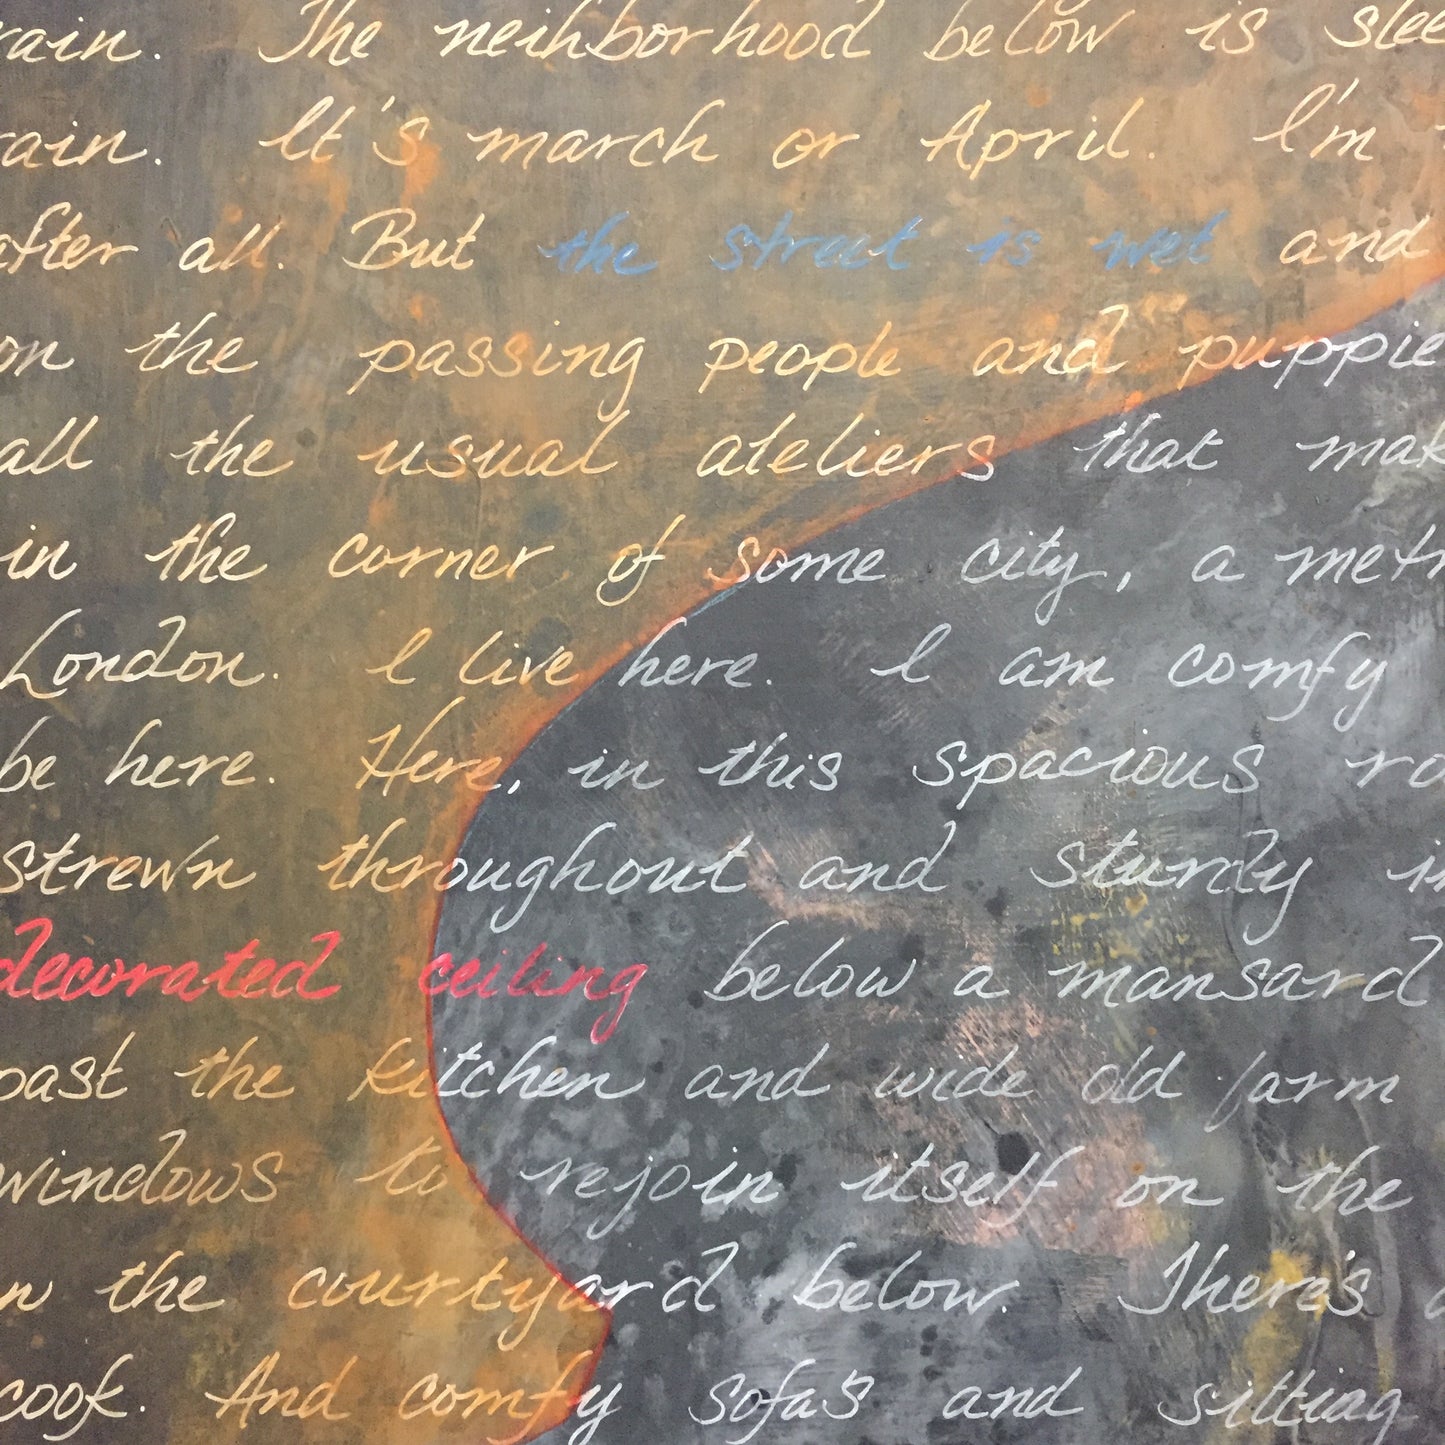 rain. The neihborhood below is slee
rain. It's march or April. I'm
after all. But the street is wet and
on the passing people and puppie
all the usual ateliers that mak
in the corner of some city, a metr
London. I live here. I am comfy
be here. Here, in this spacious ro
strewn throughout and sturdy in
decorated ceiling below a mansard
past the kitchen and wide old farm
windows to rejoin itself on the
n the courtyard below. There's
cook. And comfy sofa's and sitting